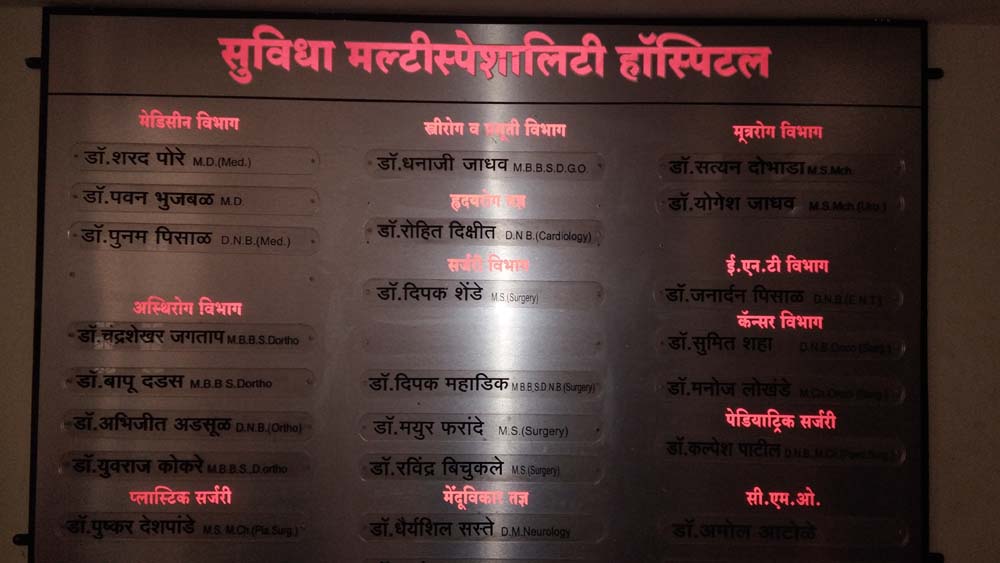 सुविधा मल्टीस्पेशालिटी हॉस्पिटल
मेडिसीन विभाग
डॉ.शरद पोरे M.D.(Med.)
डॉ.पवन भुजबळ M.D
डॉ.पुनम पिसाळ D.N.B.(Med.)
अस्थिरोग विभाग
डॉ.चंद्रशेखर जगताप M.B.B.S.Dortho
डॉ.बापू दडस M.B.B S.Dortho
डॉ.अभिजीत अडसूळ D.N.B.(Ortho)
डॉ.युवराज कोकरे M.B.B.S.,D.ortho
प्लास्टिक सर्जरी
डॉ.पुष्कर देशपांडे M.S. M.Ch.(Pla.Surg.)
स्त्रीरोग व प्रसूती विभाग
डॉ.धनाजी जाधव M.B.B.S.D.G.O.
हृदयरोग तज्ञ
डॉ.रोहित दिक्षीत D.N.B.(Cardiology)
सर्जरी विभाग
डॉ.दिपक शेंडे M.S.(Surgery)
डॉ.दिपक महाडिक M.B.B.S.D.N.B.(Surgery)
डॉ.मयुर फरांदे M.S.(Surgery)
डॉ.रविंद्र बिचुकले M.S.(Surgery)
मेंदूविकार तज्ञ
डॉ.धैर्यशिल सस्ते D.M.Neurology
मूत्ररोग विभाग
डॉ.सत्यन दोभाडा M.S.Mch.
डॉ.योगेश जाधव M.S.Mch.(Uro.)
ई.एन.टी विभाग
डॉ.जनार्दन पिसाळ D.N.B.(E.N.T.)
कॅन्सर विभाग
डॉ.सुमित शहा
डॉ.मनोज लोखंडे
पेडियाट्रिक सर्जरी
डॉ.कल्पेश पाटील
सी.एम.ओ.
डॉ.अमोल आटोळे